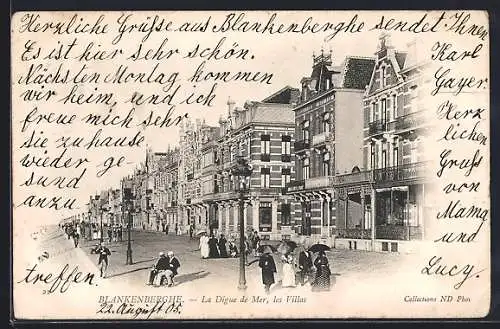 Herzliche Grüsse aus Blankenberghe sendet Ihnen
Karl
Gayer.
Es ist hier sehr schön.
Nächsten Montag kommen
wir heim, und ich
freue mich sehr
Sie zuhause
wieder ge-
sund
anzu
treffen.
22. August 05.
Herz
lichen
Gruß
von
Mama
und
Lucy.
BLANKENBERGHE. — La Digue de Mer, les Villas
Collections ND Phot